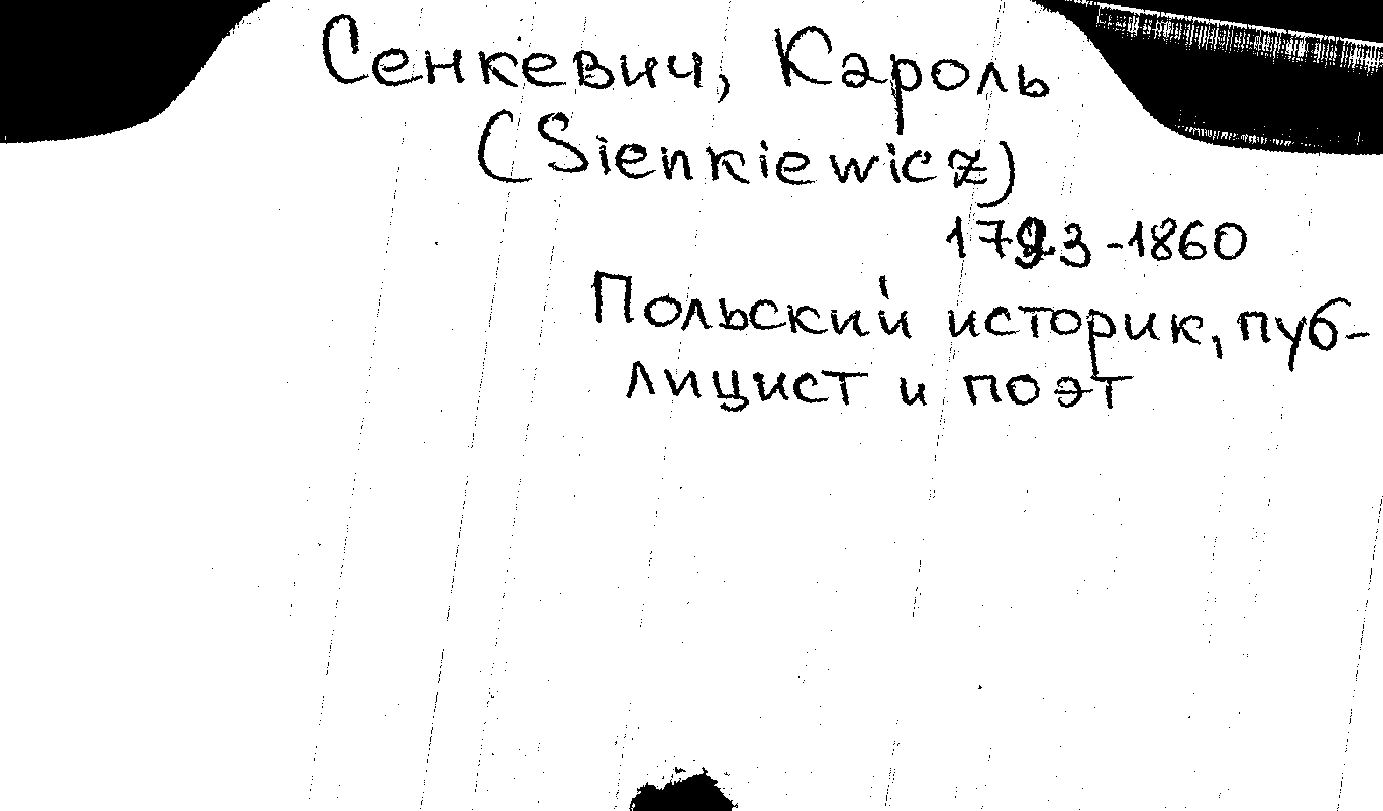 Сенкевич, Кароль
(Sienkiewicz)
1793-1860
Польский историк, пуб-
лицист и поэт